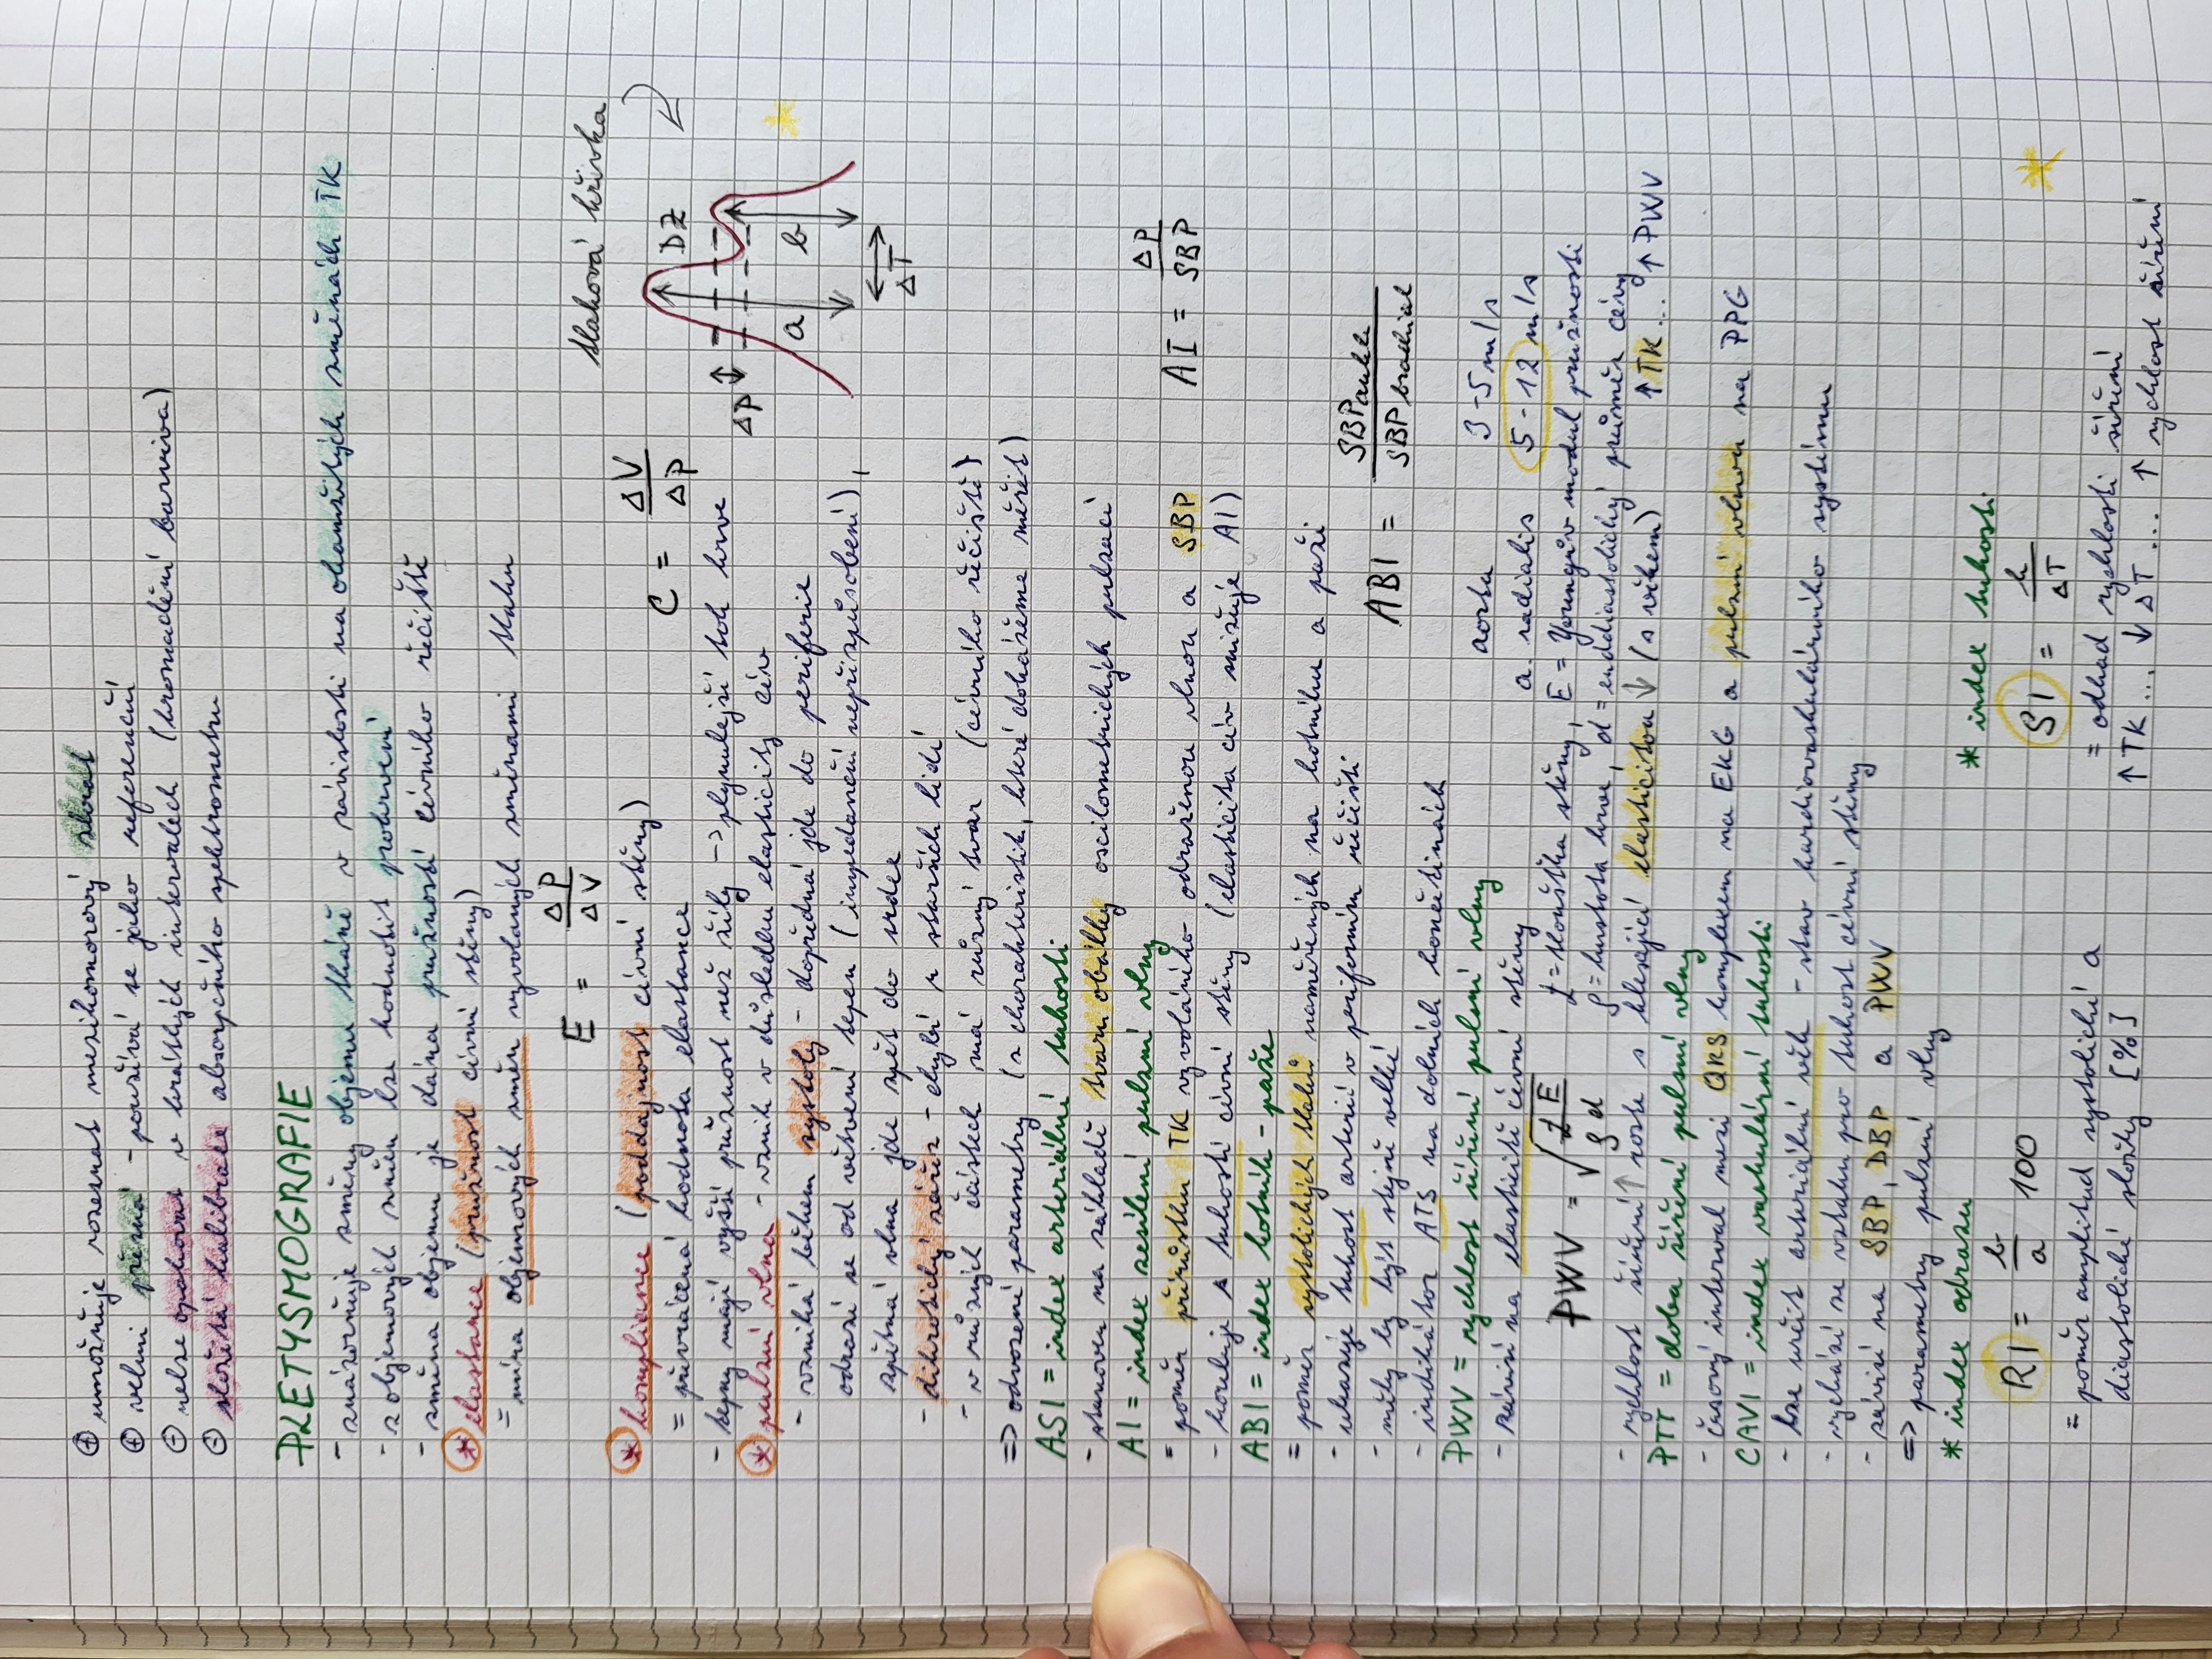 ⊕ umožňuje rozeznat mezikomorový zkrat
⊕ velmi přesná - používá se jako referenční
⊖ nelze opakovat v krátkých intervalech (hromadění barviva)
⊖ složitá kalibrace absorpčního spektrometru
PLETYSMOGRAFIE
- znázorňuje změny objemu tkáně v závislosti na okamžitých změnách TK
- z objemových změn lze hodnotit prokrvení
- změna objemu je dána pružností cévního řečiště
* elastance (pružnost cévní stěny)
= míra objemových změn vyvolaných změnami tlaku
E = ΔP / ΔV
tlaková křivka
* kompliance (poddajnost cévní stěny)
C = ΔV / ΔP
= převrácená hodnota elastance
- tepny mají vyšší pružnost než žíly -> plynulejší tok krve
DZ
ΔP
a
b
ΔT
* pulzní vlna - vznik v důsledku elasticity cév
- vzniká během systoly - dopředná jde do periferie
odrazí se od větvení tepen (impedanční nepřizpůsobení),
zpětná vlna jde zpět do srdce
- dikrotický zářez - chybí u starších lidí
- v různých částech má různý tvar (cévního řečiště)
=> odvozené parametry (z charakteristik, které dokážeme měřit)
ASI = index arteriální tuhosti
- stanoven na základě tvaru obálky oscilometrických pulzací
AI = index zesílení pulzní vlny
= poměr přírůstku TK vyvolaného odraženou vlnou a SBP
AI = ΔP / SBP
- koreluje s tuhostí cévní stěny (elasticita cév snižuje AI)
ABI = index kotník - paže
= poměr systolických tlaků naměřených na kotníku a paži
- ukazuje tuhost arterií v periferním řečišti
ABI = SBP ankle / SBP brachial
- měly by být stejně velké
- indikátor ATS na dolních končetinách
PWV = rychlost šíření pulsní vlny
aorta 3-5 m/s
- závisí na elasticitě cévní stěny
a. radialis 5-12 m/s
PWV = √(t E / ρ d)
t = tloušťka stěny, E = Youngův modul pružnosti
ρ = hustota krve, d = enddiastolický průměr cévy
- rychlost šíření ↑ roste s klesající elasticitou ↓ (s věkem) ↑ TK... ↑ PWV
PTT = doba šíření pulsní vlny
- časový interval mezi QRS komplexem na EKG a pulzní vlnou na PPG
CAVI = index vaskulární tuhosti
- lze určit arteriální věk - stav kardiovaskulárního systému
- vychází ze vztahu pro tuhost cévní stěny
- závisí na SBP, DBP a PWV
=> parametry pulzní vlny
* index odrazu
RI = b / a 100
= poměr amplitud systolické a
diastolické složky [%]
* index tuhosti
SI = h / ΔT
= odhad rychlosti šíření
↑ TK ... ↓ ΔT ... ↑ rychlost šíření